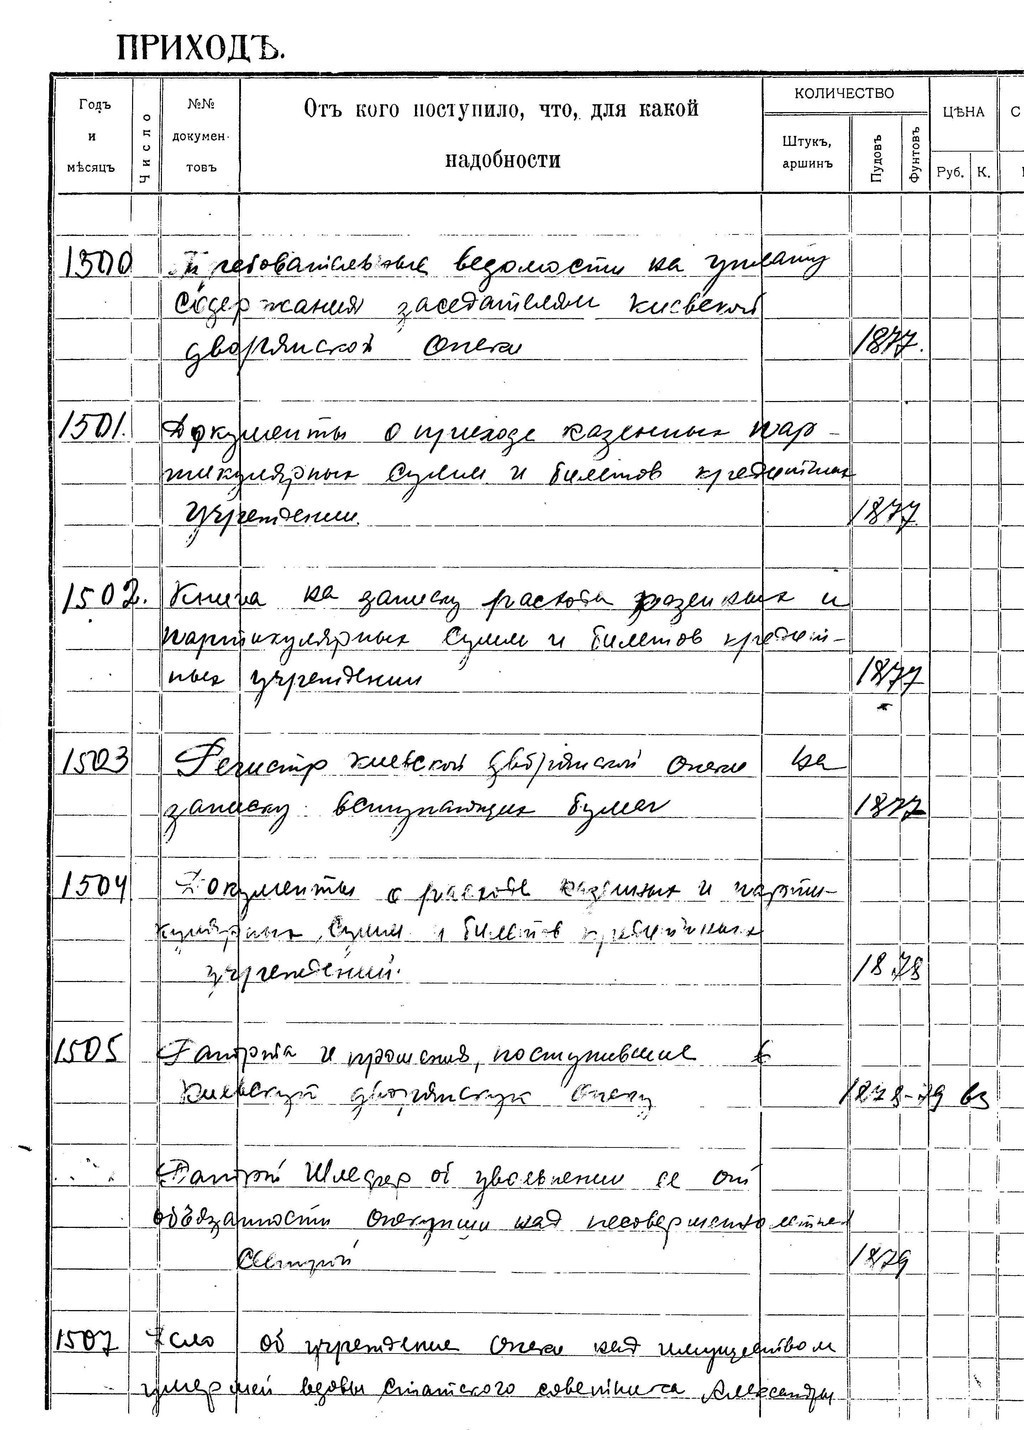 ПРИХОДЪ.
Годъ и мѣсяцъ
Число
№№ докумен-товъ
Отъ кого поступило, что, для какой надобности
КОЛИЧЕСТВО
Штукъ, аршинъ
Пудовъ
Фунтовъ
ЦѢНА
Руб. К.
С
1500 Требовательные ведомости на уплату
содержания заседателям Киевской
дворянской опеки 1877.
1501. Документы о приходе казенных пар-
тикулярных сумм и билетов кредитных
учреждении. 1877
1502. Книга на записку расхода казенных и
партикулярных сумм и билетов кредит-
ных учреждении 1877
1503 Регистр Киевской дворянской опеки на
записку вступающих бумаг 1877
1504 Документы о расходе казенных и парти-
кулярных сумм и билетов кредитных
учреждений. 1878
1505 Рапорта и прошения, поступившие в
Киевскую дворянскую опеку 1878-79 
Рапорт об увольнении ее от
обязанности опекунши над несовершеннолетней
сестрой 1879
1507 Дело об учреждение опеки над имуществом
умершей вдовы статского советника Александры